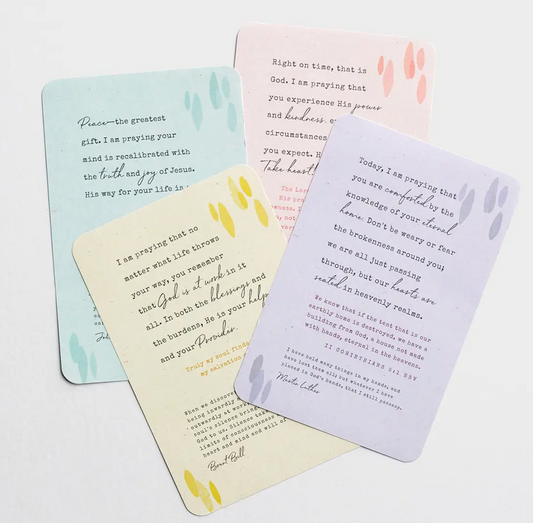 Peace—the greatest
gift. I am praying your
mind is recalibrated with
the truth and joy of Jesus.
His way for your life is
Right on time, that is
God. I am praying that
you experience His power
and kindness.
circumstances
you expect. H
Take heart
The Lor
His pr
I am praying that no
matter what life throws
your way, you remember
that God is at work in it
all. In both the blessings and
the burdens, He is your help
and your Provider.
Truly my soul finds
my salvation
When we discover
being inwardly
outwardly at work,
soul's silence brings
God to us. Silence takes
limits of consciousness
heart and mind and will of
Today, I am praying that
you are comforted by the
knowledge of your eternal
home. Don't be weary or fear
the brokenness around you;
we are all just passing
through, but our hearts are
seated in heavenly realms.
We know that if the tent that is our
earthly home is destroyed, we have a
building from God, a house not made
with hands, eternal in the heavens.
II CORINTHIANS 5:1 ESV
I have held many things in my hands, and
have lost them all; but whatever I have
placed in God's hands, that I still possess.
Martin Luther